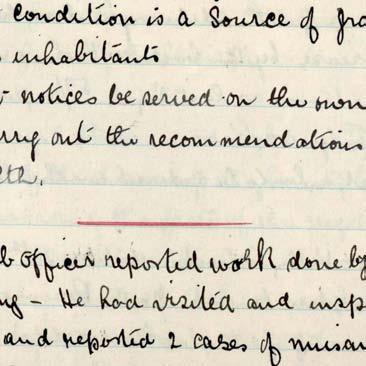 condition is a Source of gra
inhabitants
notices be served on the own
rry out the recommendations
lth.
b Officer reported work done by
ng - He had visited and insp
and reported 2 cases of nuisan